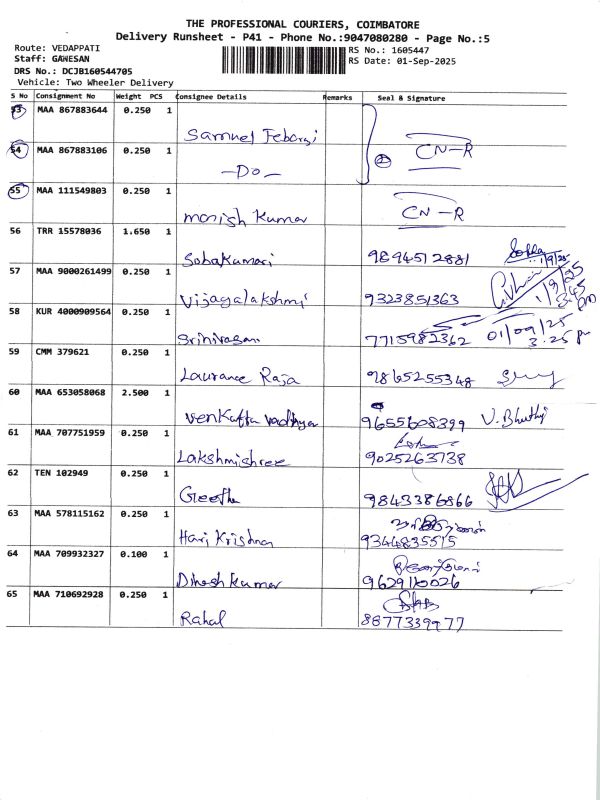 THE PROFESSIONAL COURIERS, COIMBATORE
Delivery Runsheet - P41 - Phone No.:9047080280 - Page No.:5
Route: VEDAPPATI
Staff: GAWESAN
DRS No.: DCJB160544705
Vehicle: Two Wheeler Delivery
RS No.: 1605447
RS Date: 01-Sep-2025
S No Consignment No Weight PCS Consignee Details Remarks Seal & Signature
53 MAA 867883644 0.250 1
Samuel
54 MAA 867883106 0.250 1 CN-R
-Do-
55 MAA 111549803 0.250 1
Monish Kumar CN-R
56 TRR 15578036 1.650 1
Sobakumari 9894512881 1/9/25
57 MAA 9000261499 0.250 1
Vijayalakshmi 9323851363 1/9/25 3.45 pm
58 KUR 4000909564 0.250 1
Srinivasan 7715982362 01/09/25 3.25 pm
59 CMM 379621 0.250 1
Laurance Raja 9865255348
60 MAA 653058068 2.500 1
Venkatta 9655608399 V. Bhuthi
61 MAA 707751959 0.250 1
Lakshmishree 9025263738
62 TEN 102949 0.250 1
Geetha 9843386866
63 MAA 578115162 0.250 1
Hari Krishna 9344835515
64 MAA 709932327 0.100 1
Dinesh Kumar 9629110026
65 MAA 710692928 0.250 1
Rahal 8877339977